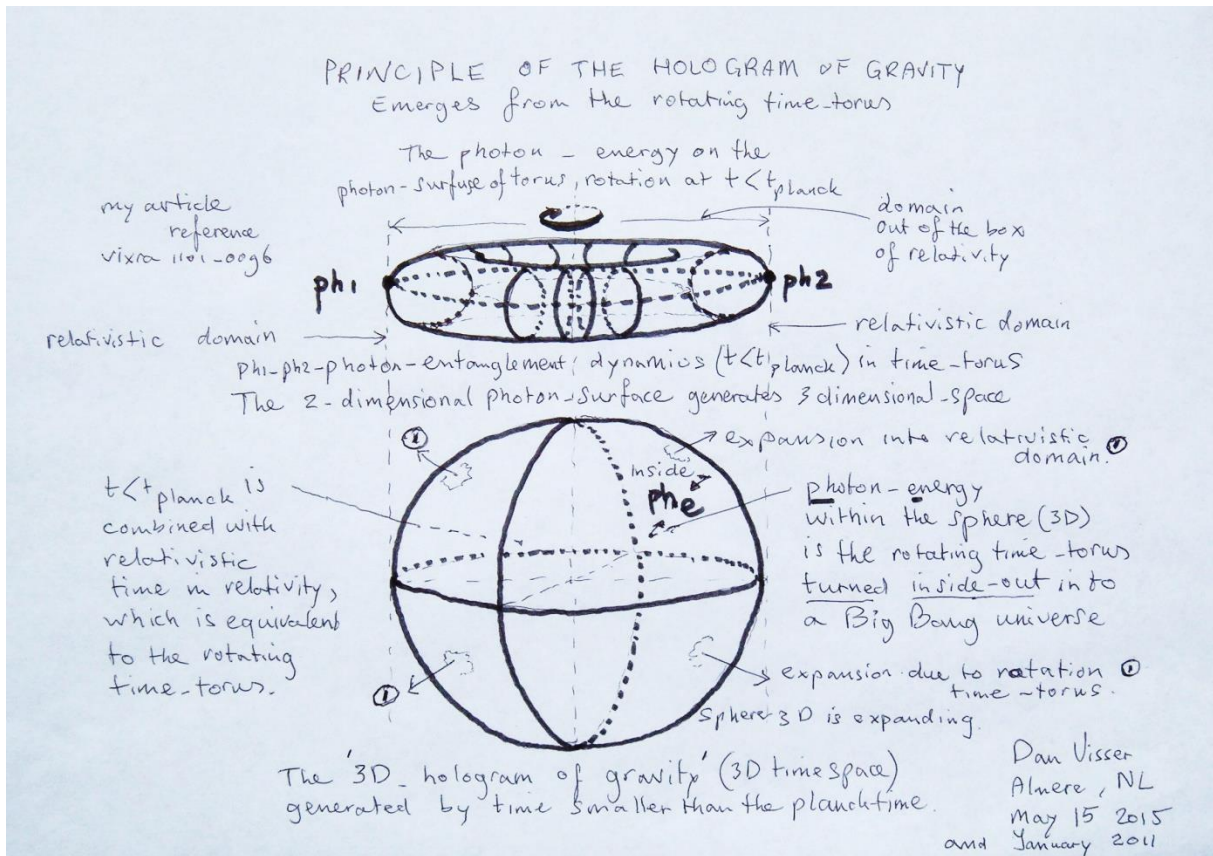 PRINCIPLE OF THE HOLOGRAM OF GRAVITY
Emerges from the rotating time-torus
The photon - energy on the
photon-surfuse of torus, rotation at t<t planck
my article
reference
vixra 1101-0096
domain
out of the box
of relativity
ph1
ph2
relativistic domain
relativistic domain
ph1-ph2-photon-entanglement; dynamics (t<t planck) in time-torus
The 2-dimensional photon-surface generates 3 dimensional-space
①
expansion into relativistic
domain. ①
inside
phe
t<t planck is
combined with
relativistic
time in relativity,
which is equivalent
to the rotating
time-torus.
photon-energy
within the sphere (3D)
is the rotating time-torus
turned inside-out in to
a Big Bang universe
①
expansion due to rotation ①
time-torus.
Sphere 3D is expanding.
The '3D-hologram of gravity' (3D timespace)
generated by time smaller than the plancktime.
Dan Visser
Almere, NL
May 15 2015
and January 2011